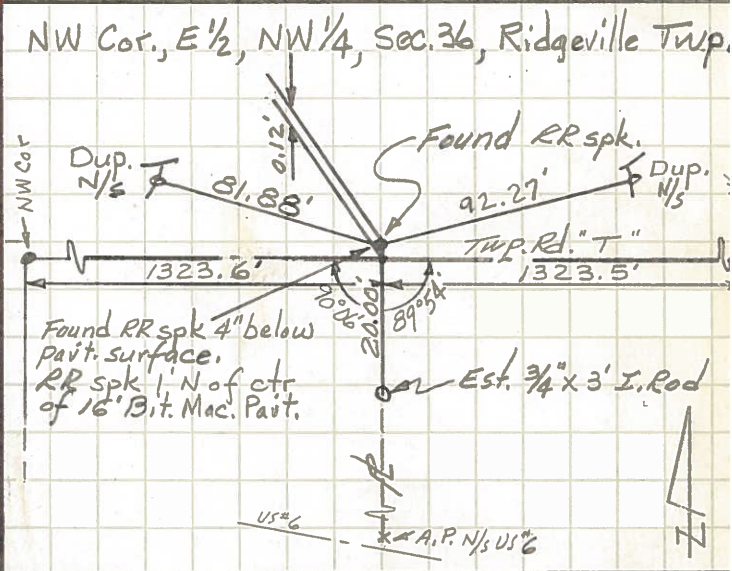 NW Cor., E 1/2, NW 1/4, Sec. 36, Ridgeville Twp.
NW Cor
0.12'
Found RR spk.
Dup.
N/S
81.88'
92.27'
Dup.
N/S
Twp. Rd. "T"
1323.6'
1323.5'
90°06'
89°54'
20.00'
Found RR spk 4" below
pav't. surface.
RR spk 1' N of ctr
of 16' Bit. Mac. Pav't.
Est. 3/4" x 3' I. Rod
US#6
A.P. N/S US#6
N